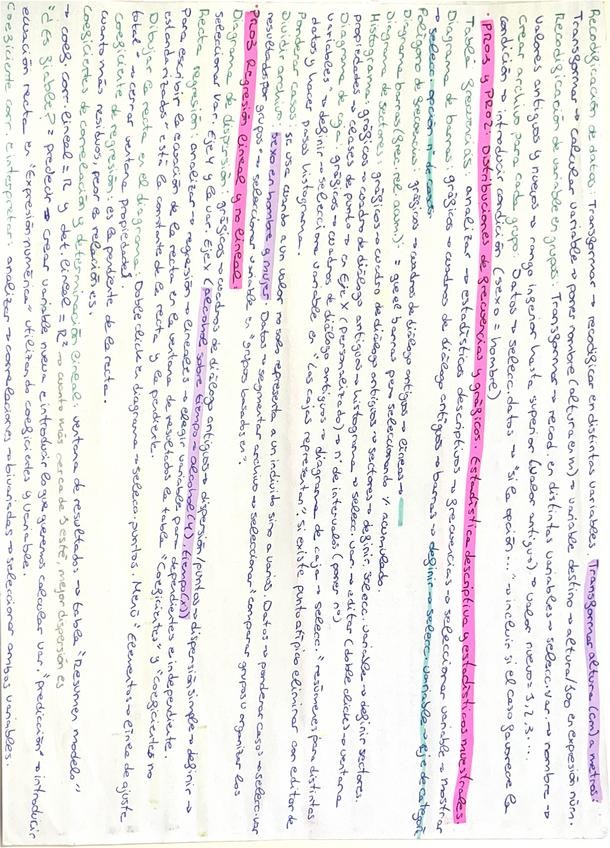 Recodificación de datos: Transformar → recodificar en distintas variables. Transformar altura (cm) a metros:
Transformar → calcular variable → poner nombre (altura en m) → variable destino → altura/100 en expresión núm.
Recodificación de variable en grupos: Transformar → recod en distintas variables → selecc. var. → nombre →
valores antiguos y nuevos → rango inferior hasta superior (valor antiguo) → valor nuevo = 1, 2, 3...
Crear archivo para cada grupo: Datos → selecc. datos → "si la opción..." → incluir si el caso favorece la
condición → introducir condición (sexo = hombre)
PR01 y PR02: Distribuciones de frecuencias y gráficos. Estadística descriptiva y estadísticos muestrales
Tabla frecuencias: analizar → estadísticos descriptivos → frecuencias → seleccionar variable → mostrar
Diagrama de barras: gráficos → cuadros de diálogo antiguos → barras → definir → selecc variable → eje de categ
→ selecc opción nº de casos.
Polígono de frecuencias: gráficos → cuadros de diálogo antiguos → líneas →
Diagrama barras (frec. rel. acum): = que el barras pero seleccionando % acumulado.
Diagrama de sectores: gráficos → cuadro de diálogo antiguos → sectores → definir, selecc. variable → definir sectores.
Histograma: gráficos → cuadro de diálogo antiguos → histograma → selecc. var. → editor (doble click) → ventana
propiedades → clases de punto → en Eje X (personalizado) → nº de intervalos (poner nº)
Diagrama de caja: gráficos → cuadros de diálogo antiguos → diagrama de caja → selecc. "resúmenes para distintas
variables" → definir → selecciono variable en "Las cajas representan" si existe punto atípico eliminar con editor de
datos y hacer pasos histograma.
Ponderar casos: se usa cuando a un valor no solo representa a un individuo sino a varios. Datos → ponderar casos → selecc var
Dividir archivo: sexo en hombre y mujer Datos → segmentar archivo → seleccionar "comparar grupos u organizar los
resultados por grupos → seleccionar variable en "grupos basados en".
PR03 Regresión lineal y no lineal
Diagrama de dispersión: gráficos → cuadros de diálogo antiguos → dispersión/puntos → dispersión simple → definir →
seleccionar var. Eje Y y la var. Eje X (alcohol sobre tiempo → alcohol (Y), tiempo (x))
Recta regresión: analizar → regresión → lineales → elegir variable para dependientes e independiente.
para escribir la ecuación de la recta en la ventana de resultados la tabla "Coeficientes" y "coeficientes no
estandarizados" está la constante de la recta y la pendiente.
Dibujar la recta en el diagrama: Doble click en diagrama → selecc. puntos. Menú "Elementos → línea de ajuste
total" → cerrar ventana propiedades.
Coeficiente de regresión: es la pendiente de la recta.
cuanto más residuos, peor la relación es.
Coeficientes de correlación y determinación lineal: ventana de resultados → tabla "Resumen modelo"
→ coef. corr. lineal = R y det lineal = R² → cuanto más cerca de 1 esté, mejor dispersión es
"¿Es fiable?" = predecir → crear variable nueva e introducir lo que queremos calcular var. "predicción → introducir
ecuación recta en "Expresión numérica" utilizando coeficientes y variable.
Coeficiente corr. e interpretar analizar → correlaciones → bivariadas → seleccionar ambas variables.